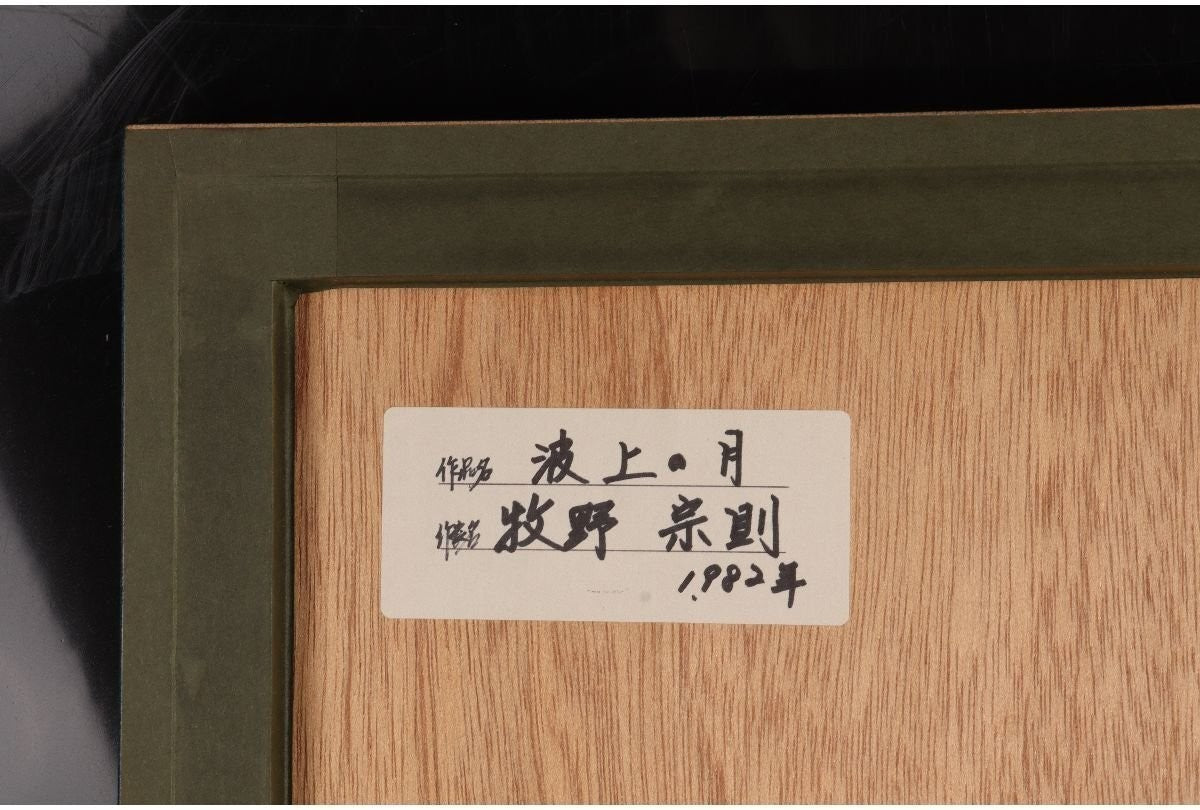 作品名 波上の月
作家名 牧野 宗則
1982年